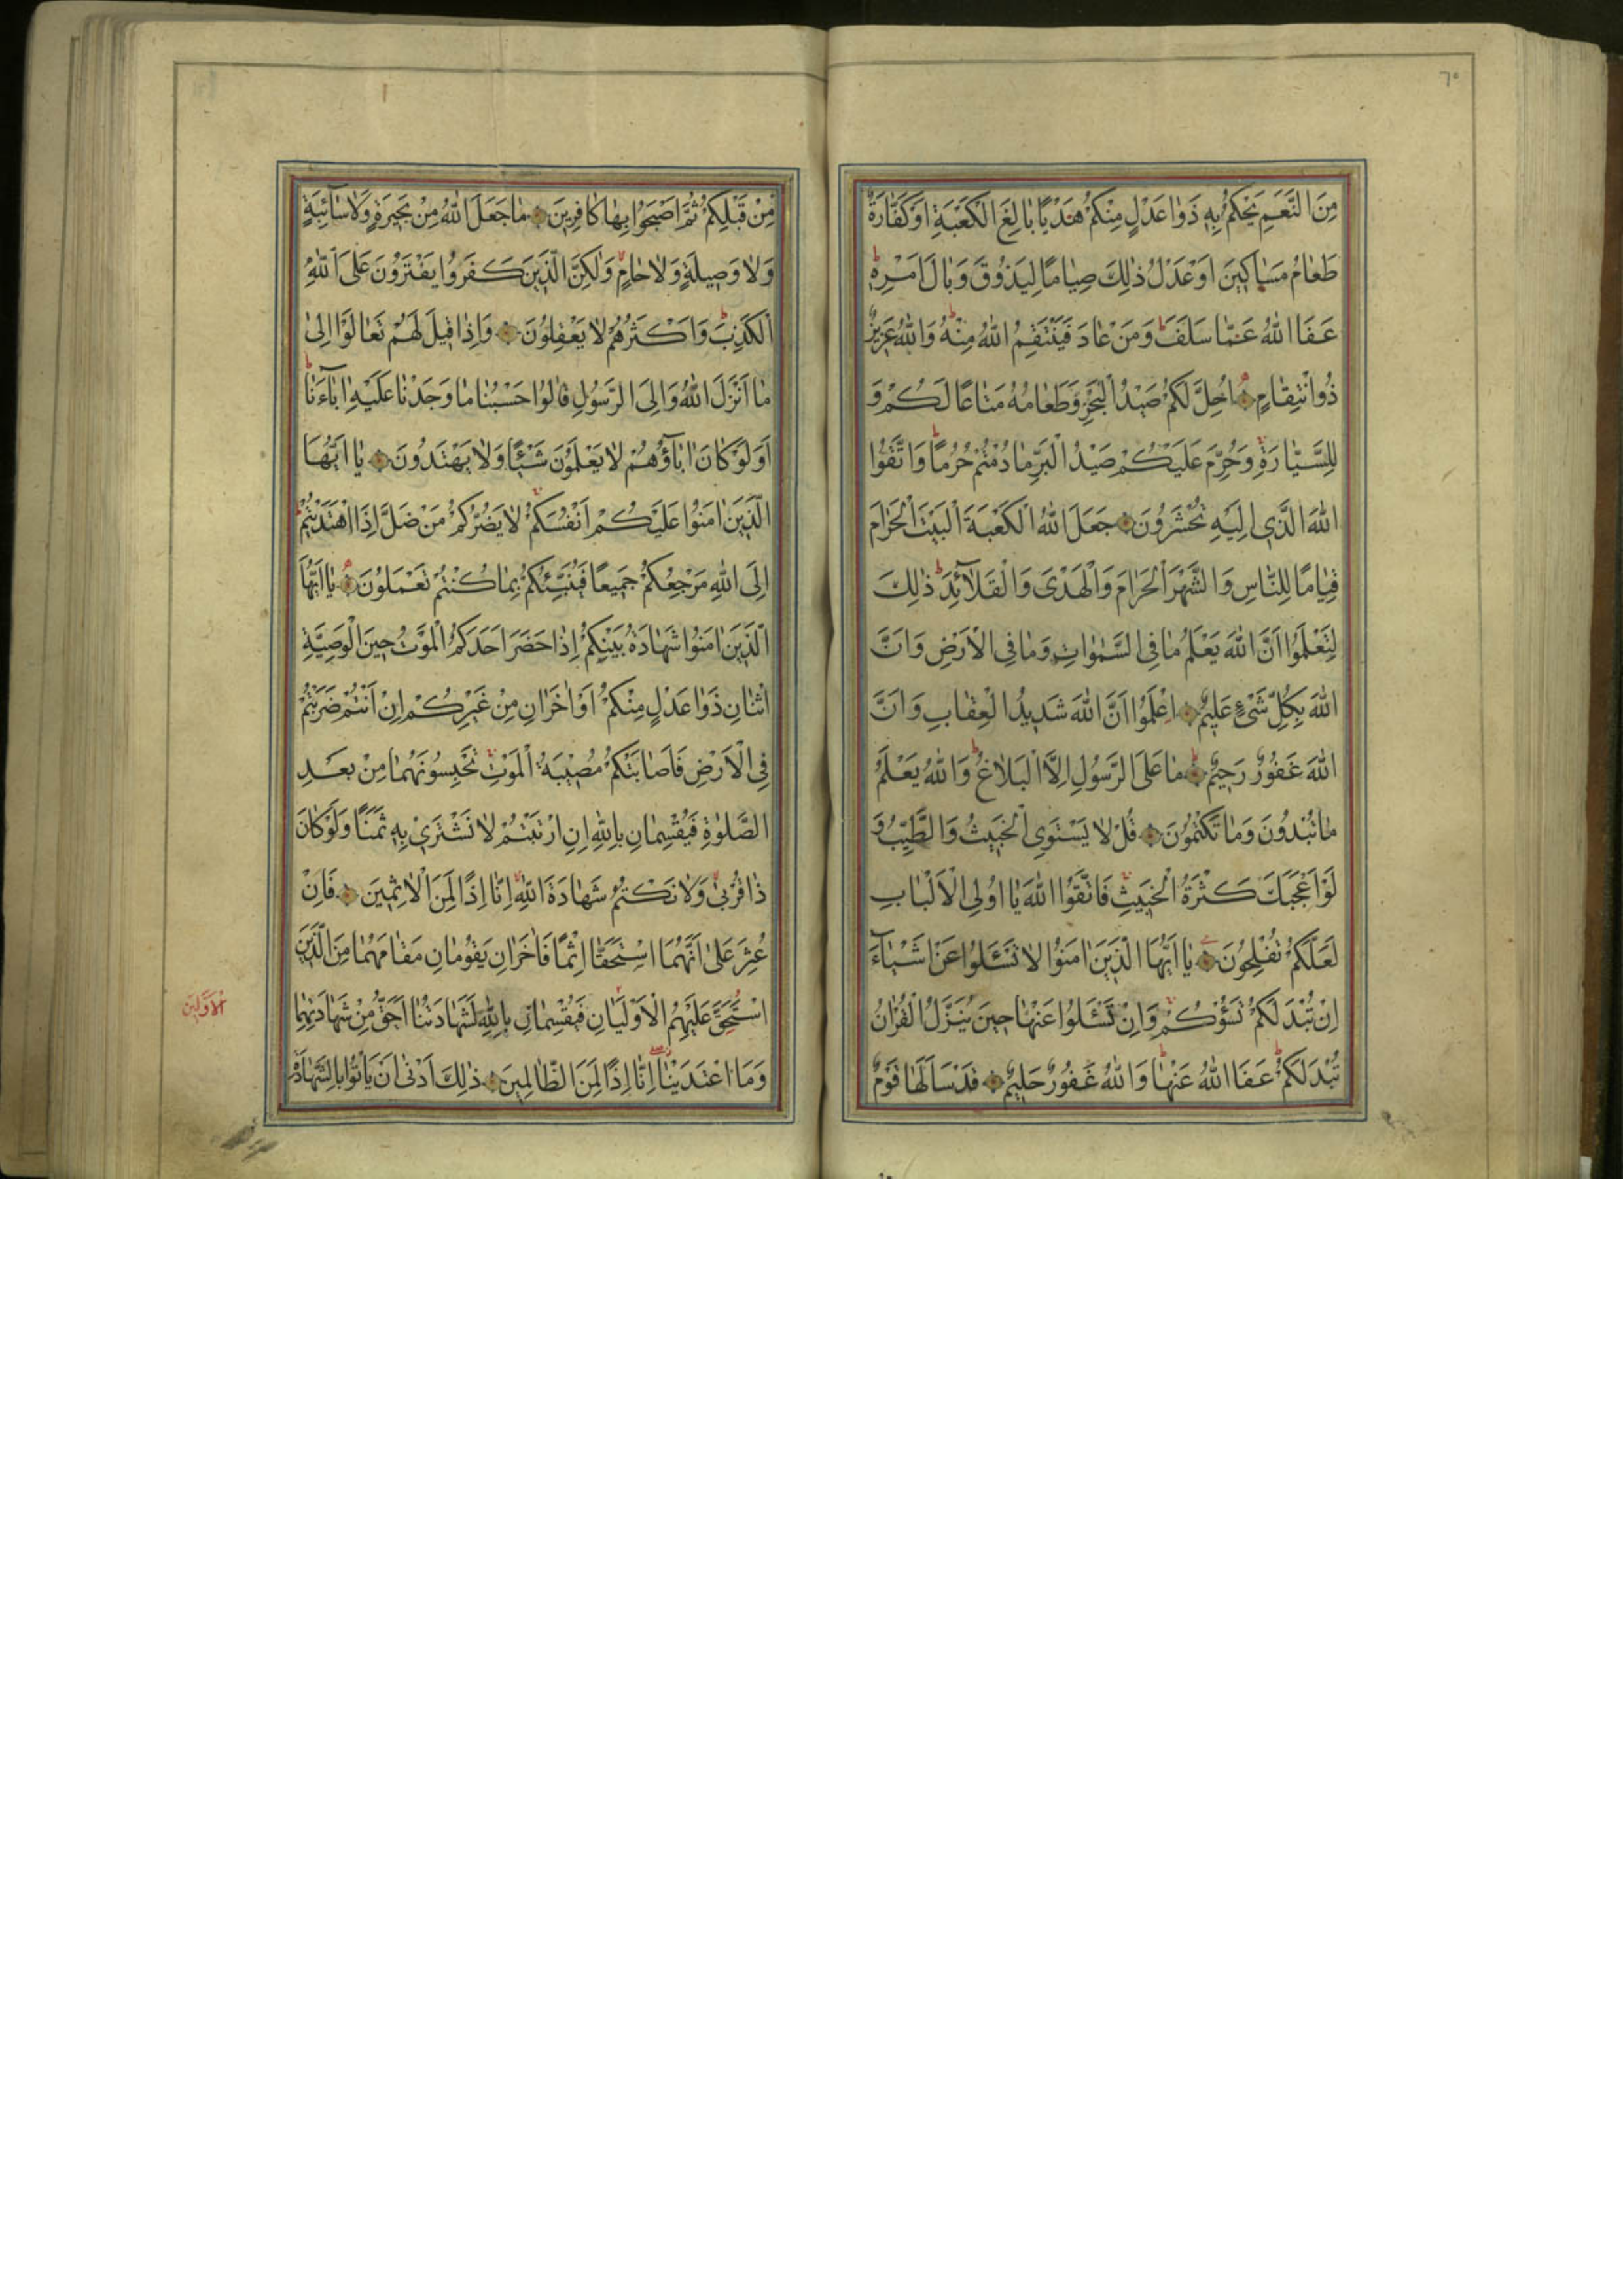 ٦٥
مِنَ النَّعَمِ يَحْكُمُ بِهِ ذَوَا عَدْلٍ مِنْكُمْ هَدْيًا بَالِغَ الْكَعْبَةِ اَوْ كَفَّارَةٌ
طَعَامُ مَسَاكِينَ اَوْ عَدْلُ ذٰلِكَ صِيَامًا لِيَذُوقَ وَبَالَ اَمْرِهِ
عَفَا اللهُ عَمَّا سَلَفَ وَمَنْ عَادَ فَيَنْتَقِمُ اللهُ مِنْهُ وَاللهُ عَزِيزٌ
ذُو انْتِقَامٍ اُحِلَّ لَكُمْ صَيْدُ الْبَحْرِ وَطَعَامُهُ مَتَاعًا لَكُمْ وَ
لِلسَّيَّارَةِ وَحُرِّمَ عَلَيْكُمْ صَيْدُ الْبَرِّ مَا دُمْتُمْ حُرُمًا وَاتَّقُوا
اللهَ الَّذِي اِلَيْهِ تُحْشَرُونَ جَعَلَ اللهُ الْكَعْبَةَ الْبَيْتَ الْحَرَامَ
قِيَامًا لِلنَّاسِ وَالشَّهْرَ الْحَرَامَ وَالْهَدْىَ وَالْقَلَآئِدَ ذٰلِكَ
لِتَعْلَمُوا اَنَّ اللهَ يَعْلَمُ مَا فِى السَّمٰوَاتِ وَمَا فِى الْاَرْضِ وَاَنَّ
اللهَ بِكُلِّ شَىْءٍ عَلِيمٌ اِعْلَمُوا اَنَّ اللهَ شَدِيدُ الْعِقَابِ وَاَنَّ
اللهَ غَفُورٌ رَحِيمٌ مَا عَلَى الرَّسُولِ اِلَّا الْبَلَاغُ وَاللهُ يَعْلَمُ
مَا تُبْدُونَ وَمَا تَكْتُمُونَ قُلْ لَا يَسْتَوِى الْخَبِيثُ وَالطَّيِّبُ وَ
لَوْ اَعْجَبَكَ كَثْرَةُ الْخَبِيثِ فَاتَّقُوا اللهَ يَا اُولِى الْاَلْبَابِ
لَعَلَّكُمْ تُفْلِحُونَ يَا اَيُّهَا الَّذِينَ اٰمَنُوا لَا تَسْـَٔلُوا عَنْ اَشْيَآءَ
اِنْ تُبْدَ لَكُمْ تَسُؤْكُمْ وَاِنْ تَسْـَٔلُوا عَنْهَا حِينَ يُنَزَّلُ الْقُرْاٰنُ
تُبْدَ لَكُمْ عَفَا اللهُ عَنْهَا وَاللهُ غَفُورٌ حَلِيمٌ قَدْ سَاَلَهَا قَوْمٌ
مِنْ قَبْلِكُمْ ثُمَّ اَصْبَحُوا بِهَا كَافِرِينَ مَا جَعَلَ اللهُ مِنْ بَحِيرَةٍ وَلَا سَآئِبَةٍ
وَلَا وَصِيلَةٍ وَلَا حَامٍ وَلٰكِنَّ الَّذِينَ كَفَرُوا يَفْتَرُونَ عَلَى اللهِ
الْكَذِبَ وَاَكْثَرُهُمْ لَا يَعْقِلُونَ وَاِذَا قِيلَ لَهُمْ تَعَالَوْا اِلٰى
مَا اَنْزَلَ اللهُ وَاِلَى الرَّسُولِ قَالُوا حَسْبُنَا مَا وَجَدْنَا عَلَيْهِ اٰبَآءَنَا
اَوَلَوْ كَانَ اٰبَآؤُهُمْ لَا يَعْلَمُونَ شَيْئًا وَلَا يَهْتَدُونَ يَا اَيُّهَا
الَّذِينَ اٰمَنُوا عَلَيْكُمْ اَنْفُسَكُمْ لَا يَضُرُّكُمْ مَنْ ضَلَّ اِذَا اهْتَدَيْتُمْ
اِلَى اللهِ مَرْجِعُكُمْ جَمِيعًا فَيُنَبِّئُكُمْ بِمَا كُنْتُمْ تَعْمَلُونَ يَا اَيُّهَا
الَّذِينَ اٰمَنُوا شَهَادَةُ بَيْنِكُمْ اِذَا حَضَرَ اَحَدَكُمُ الْمَوْتُ حِينَ الْوَصِيَّةِ
اثْنَانِ ذَوَا عَدْلٍ مِنْكُمْ اَوْ اٰخَرَانِ مِنْ غَيْرِكُمْ اِنْ اَنْتُمْ ضَرَبْتُمْ
فِى الْاَرْضِ فَاَصَابَتْكُمْ مُصِيبَةُ الْمَوْتِ تَحْبِسُونَهُمَا مِنْ بَعْدِ
الصَّلٰوةِ فَيُقْسِمَانِ بِاللهِ اِنِ ارْتَبْتُمْ لَا نَشْتَرِى بِهِ ثَمَنًا وَلَوْ كَانَ
ذَا قُرْبٰى وَلَا نَكْتُمُ شَهَادَةَ اللهِ اِنَّا اِذًا لَمِنَ الْاٰثِمِينَ فَاِنْ
عُثِرَ عَلٰى اَنَّهُمَا اسْتَحَقَّا اِثْمًا فَاٰخَرَانِ يَقُومَانِ مَقَامَهُمَا مِنَ الَّذِينَ
اسْتَحَقَّ عَلَيْهِمُ الْاَوْلَيَانِ فَيُقْسِمَانِ بِاللهِ لَشَهَادَتُنَا اَحَقُّ مِنْ شَهَادَتِهِمَا
وَمَا اعْتَدَيْنَا اِنَّا اِذًا لَمِنَ الظَّالِمِينَ ذٰلِكَ اَدْنٰى اَنْ يَأْتُوا بِالشَّهَادَةِ
الْاَوَّلِينَ